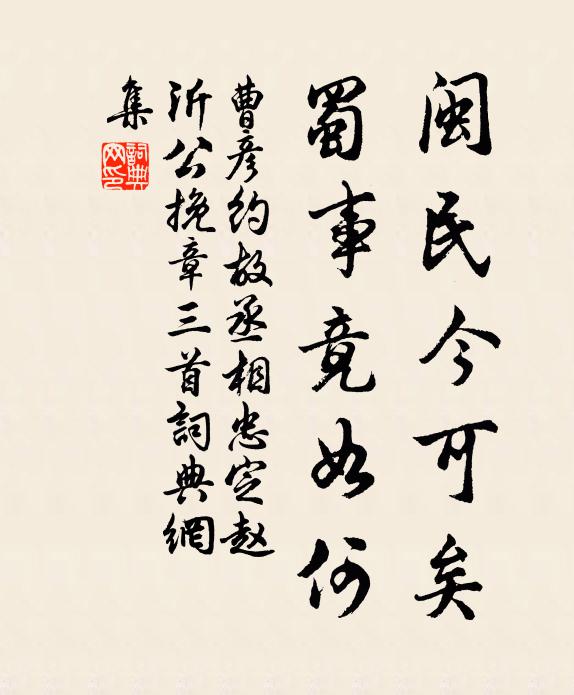 閩民今可矣
蜀事竟如何
曹彥約故丞相忠定趙
沂公挽章三首詞典網
集
詞典
网印